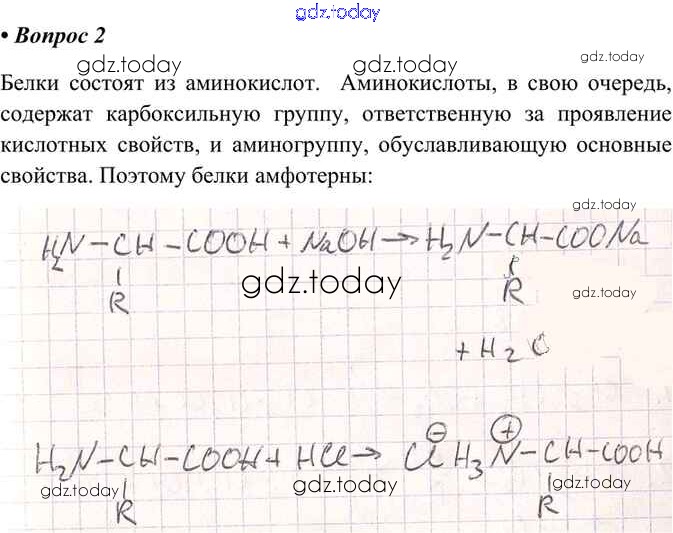 gdz.today
• Вопрос 2
gdz.today
gdz.today
gdz.today
Белки состоят из аминокислот. Аминокислоты, в свою очередь,
содержат карбоксильную группу, ответственную за проявление
кислотных свойств, и аминогруппу, обуславливающую основные
свойства. Поэтому белки амфотерны:
gdz.today
gdz.today
H₂N–CH–COOH + NaOH → H₂N–CH–COONa
R R
gdz.today
gdz.today
+ H₂O
H₂N–CH–COOH + HCl → Cl⊖ H₃N⊕–CH–COOH
gdz.today
gdz.today
gdz.today
R R